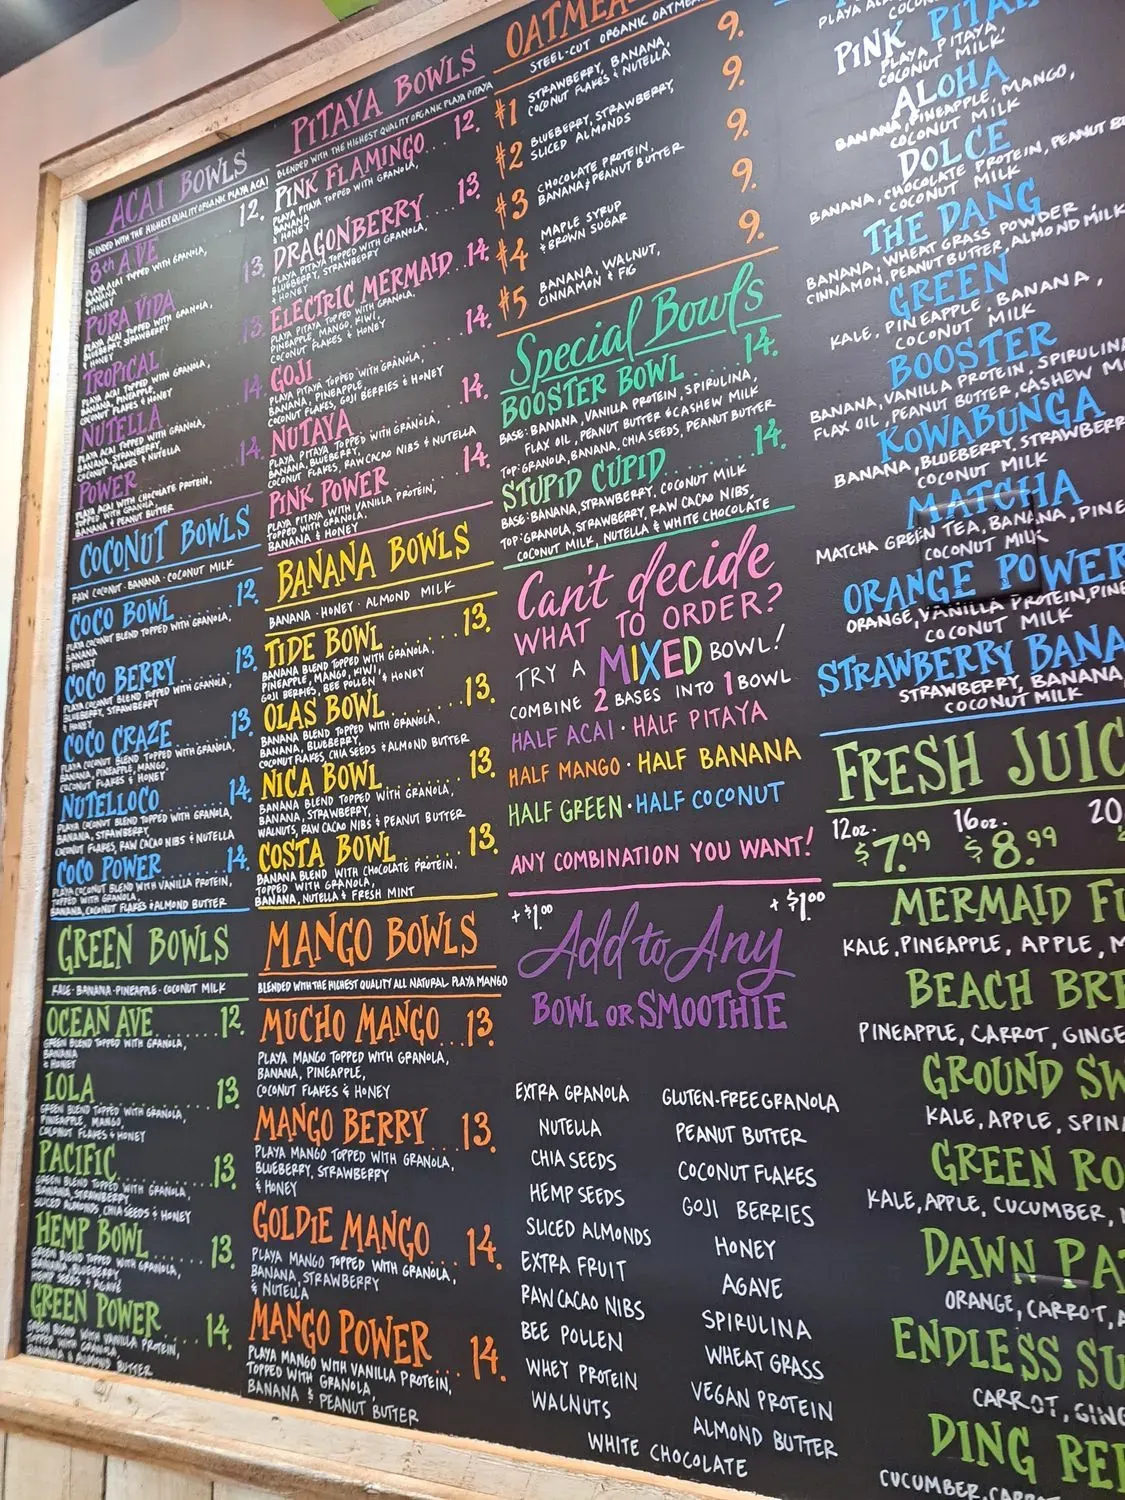 ACAI BOWLS
BLENDED WITH THE HIGHEST QUALITY ORGANIC PLAYA ACAI
8th AVE 12.
PLAYA ACAI TOPPED WITH GRANOLA,
BANANA
& HONEY
PURA VIDA 13.
PLAYA ACAI TOPPED WITH GRANOLA,
BLUEBERRY, STRAWBERRY
TROPICAL 13.
PLAYA ACAI TOPPED WITH GRANOLA,
BANANA, PINEAPPLE,
COCONUT FLAKES & HONEY
NUTELLA 14.
PLAYA ACAI TOPPED WITH GRANOLA,
BANANA, STRAWBERRY,
COCONUT FLAKES & NUTELLA
POWER 14.
PLAYA ACAI WITH CHOCOLATE PROTEIN,
TOPPED WITH GRANOLA,
BANANA & PEANUT BUTTER
COCONUT BOWLS
RAW COCONUT · BANANA · COCONUT MILK
COCO BOWL 12.
PLAYA COCONUT BLEND TOPPED WITH GRANOLA,
BANANA
& HONEY
COCO BERRY 13.
PLAYA COCONUT BLEND TOPPED WITH GRANOLA,
BLUEBERRY, STRAWBERRY
& HONEY
COCO CRAZE 13.
PLAYA COCONUT BLEND TOPPED WITH GRANOLA,
BANANA, PINEAPPLE, MANGO,
COCONUT FLAKES & HONEY
NUTELLOCO 14.
PLAYA COCONUT BLEND TOPPED WITH GRANOLA,
BANANA, STRAWBERRY,
COCONUT FLAKES, RAW CACAO NIBS & NUTELLA
COCO POWER 14.
PLAYA COCONUT BLEND WITH VANILLA PROTEIN,
TOPPED WITH GRANOLA,
BANANA, COCONUT FLAKES & ALMOND BUTTER
GREEN BOWLS
KALE · BANANA · PINEAPPLE · COCONUT MILK
OCEAN AVE 12.
GREEN BLEND TOPPED WITH GRANOLA,
BANANA
& HONEY
LOLA 13.
GREEN BLEND TOPPED WITH GRANOLA,
PINEAPPLE, MANGO,
COCONUT FLAKES & HONEY
PACIFIC 13.
GREEN BLEND TOPPED WITH GRANOLA,
BANANA, STRAWBERRY,
SLICED ALMONDS, CHIA SEEDS & HONEY
HEMP BOWL 13.
GREEN BLEND TOPPED WITH GRANOLA,
BANANA, BLUEBERRY,
HEMP SEEDS & AGAVE
GREEN POWER 14.
GREEN BLEND WITH VANILLA PROTEIN,
TOPPED WITH GRANOLA,
BANANA & ALMOND BUTTER
PITAYA BOWLS
BLENDED WITH THE HIGHEST QUALITY ORGANIC PLAYA PITAYA
PINK FLAMINGO 12.
PLAYA PITAYA TOPPED WITH GRANOLA,
BANANA
& HONEY
DRAGONBERRY 13.
PLAYA PITAYA TOPPED WITH GRANOLA,
BLUEBERRY, STRAWBERRY
& HONEY
ELECTRIC MERMAID 14.
PLAYA PITAYA TOPPED WITH GRANOLA,
PINEAPPLE, MANGO, KIWI,
COCONUT FLAKES & HONEY
GOJI 14.
PLAYA PITAYA TOPPED WITH GRANOLA,
BANANA, PINEAPPLE,
COCONUT FLAKES, GOJI BERRIES & HONEY
NUTAYA 14.
PLAYA PITAYA TOPPED WITH GRANOLA,
BANANA, BLUEBERRY,
COCONUT FLAKES, RAW CACAO NIBS & NUTELLA
PINK POWER 14.
PLAYA PITAYA WITH VANILLA PROTEIN,
TOPPED WITH GRANOLA,
BANANA & HONEY
BANANA BOWLS
BANANA · HONEY · ALMOND MILK
TIDE BOWL 13.
BANANA BLEND TOPPED WITH GRANOLA,
PINEAPPLE, MANGO, KIWI,
GOJI BERRIES, BEE POLLEN & HONEY
OLAS BOWL 13.
BANANA BLEND TOPPED WITH GRANOLA,
BANANA, BLUEBERRY,
COCONUT FLAKES, CHIA SEEDS & ALMOND BUTTER
NICA BOWL 13.
BANANA BLEND TOPPED WITH GRANOLA,
BANANA, STRAWBERRY,
WALNUTS, RAW CACAO NIBS & PEANUT BUTTER
COSTA BOWL 13.
BANANA BLEND WITH CHOCOLATE PROTEIN.
TOPPED WITH GRANOLA,
BANANA, NUTELLA & FRESH MINT
MANGO BOWLS
BLENDED WITH THE HIGHEST QUALITY ALL NATURAL PLAYA MANGO
MUCHO MANGO 13.
PLAYA MANGO TOPPED WITH GRANOLA,
BANANA, PINEAPPLE,
COCONUT FLAKES & HONEY
MANGO BERRY 13.
PLAYA MANGO TOPPED WITH GRANOLA,
BLUEBERRY, STRAWBERRY
& HONEY
GOLDIE MANGO 14.
PLAYA MANGO TOPPED WITH GRANOLA,
BANANA, STRAWBERRY
& NUTELLA
MANGO POWER 14.
PLAYA MANGO WITH VANILLA PROTEIN,
TOPPED WITH GRANOLA,
BANANA & PEANUT BUTTER
OATMEA
STEEL-CUT ORGANIC OATMEA
#1 STRAWBERRY, BANANA, 9.
COCONUT FLAKES & NUTELLA
#2 BLUEBERRY, STRAWBERRY, 9.
SLICED ALMONDS
#3 CHOCOLATE PROTEIN, 9.
BANANA & PEANUT BUTTER
#4 MAPLE SYRUP 9.
& BROWN SUGAR
#5 BANANA, WALNUT, 9.
CINNAMON & FIG
Special Bowls
BOOSTER BOWL 14.
BASE: BANANA, VANILLA PROTEIN, SPIRULINA,
FLAX OIL, PEANUT BUTTER & CASHEW MILK
TOP: GRANOLA, BANANA, CHIA SEEDS, PEANUT BUTTER
STUPID CUPID 14.
BASE: BANANA, STRAWBERRY, COCONUT MILK
TOP: GRANOLA, STRAWBERRY, RAW CACAO NIBS,
COCONUT MILK, NUTELLA & WHITE CHOCOLATE
Can't decide
WHAT TO ORDER?
TRY A MIXED BOWL!
COMBINE 2 BASES INTO 1 BOWL
HALF ACAI · HALF PITAYA
HALF MANGO · HALF BANANA
HALF GREEN · HALF COCONUT
ANY COMBINATION YOU WANT!
+ $1.00 + $1.00
Add to Any
BOWL OR SMOOTHIE
EXTRA GRANOLA
NUTELLA
CHIA SEEDS
HEMP SEEDS
SLICED ALMONDS
EXTRA FRUIT
RAW CACAO NIBS
BEE POLLEN
WHEY PROTEIN
WALNUTS
GLUTEN-FREE GRANOLA
PEANUT BUTTER
COCONUT FLAKES
GOJI BERRIES
HONEY
AGAVE
SPIRULINA
WHEAT GRASS
VEGAN PROTEIN
ALMOND BUTTER
WHITE CHOCOLATE
PLAYA
PINK PITAYA
PLAYA PITAYA,
COCONUT MILK
ALOHA
BANANA, PINEAPPLE, MANGO,
COCONUT MILK
DOLCE
BANANA, CHOCOLATE PROTEIN, PEANUT B
COCONUT MILK
THE DANG
BANANA, WHEAT GRASS POWDER,
CINNAMON, PEANUT BUTTER, ALMOND MILK
GREEN
KALE, PINEAPPLE, BANANA,
COCONUT MILK
BOOSTER
BANANA, VANILLA PROTEIN, SPIRULINA
FLAX OIL, PEANUT BUTTER, CASHEW M
KOWABUNGA
BANANA, BLUEBERRY, STRAWBERR
COCONUT MILK
MATCHA
MATCHA GREEN TEA, BANANA, PINE
COCONUT MILK
ORANGE POWER
ORANGE, VANILLA PROTEIN, PINE
COCONUT MILK
STRAWBERRY BANA
STRAWBERRY, BANANA
COCONUT MILK
FRESH JUIC
12oz. 16oz. 20
$7.99 $8.99
MERMAID FU
KALE, PINEAPPLE, APPLE, M
BEACH BRE
PINEAPPLE, CARROT, GINGE
GROUND SW
KALE, APPLE, SPIN
GREEN RO
KALE, APPLE, CUCUMBER,
DAWN PA
ORANGE, CARROT, A
ENDLESS SU
CARROT, GING
DING REP
CUCUMBER, CARROT